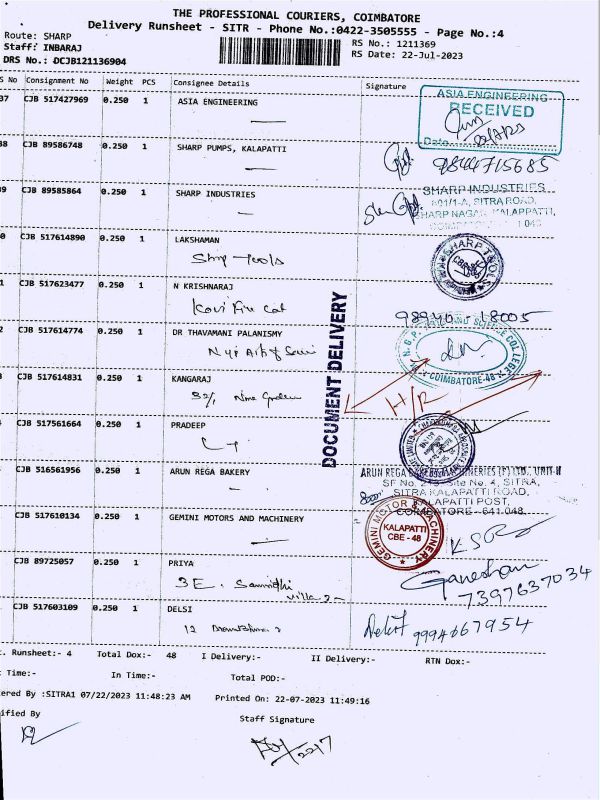 THE PROFESSIONAL COURIERS, COIMBATORE
Delivery Runsheet - SITR - Phone No.:0422-3505555 - Page No.:4
Route: SHARP
Staff: INBARAJ
DRS No.: DCJB121136904
RS No.: 1211369
RS Date: 22-Jul-2023
S No Consignment No Weight PCS Consignee Details Signature
37 CJB 517427969 0.250 1 ASIA ENGINEERING
ASIA ENGINEERING
RECEIVED
Date
38 CJB 89586748 0.250 1 SHARP PUMPS, KALAPATTI
9844715685
39 CJB 89585864 0.250 1 SHARP INDUSTRIES
SHARP INDUSTRIES
801/1-A, SITRA ROAD,
SHARP NAGAR, KALAPPATTI,
0 CJB 517614890 0.250 1 LAKSHAMAN
Sharp Tools
SHARP TOOLS
1 CJB 517623477 0.250 1 N KRISHNARAJ
18005
2 CJB 517614774 0.250 1 DR THAVAMANI PALANISMY
COLLEGE
COIMBATORE-48
CJB 517614831 0.250 1 KANGARAJ
H/R
DOCUMENT DELIVERY
CJB 517561664 0.250 1 PRADEEP
CJB 516561956 0.250 1 ARUN REGA BAKERY
ARUN REGA BAKERY MACHINERIES (P) LTD., UNIT-II
Site No. 4, SITRA,
SITRA KALAPATTI ROAD,
KALAPATTI POST,
COIMBATORE - 641 048.
CJB 517610134 0.250 1 GEMINI MOTORS AND MACHINERY
GEMINI MOTOR & MACHINERY
KALAPATTI
CBE - 48
CJB 89725057 0.250 1 PRIYA
3E.
villa
Ganeshan
7397637034
CJB 517603109 0.250 1 DELSI
12
9994667954
. Runsheet:- 4 Total Dox:- 48 I Delivery:- II Delivery:- RTN Dox:-
Time:- In Time:- Total POD:-
ered By :SITRA1 07/22/2023 11:48:23 AM Printed On: 22-07-2023 11:49:16
ified By Staff Signature